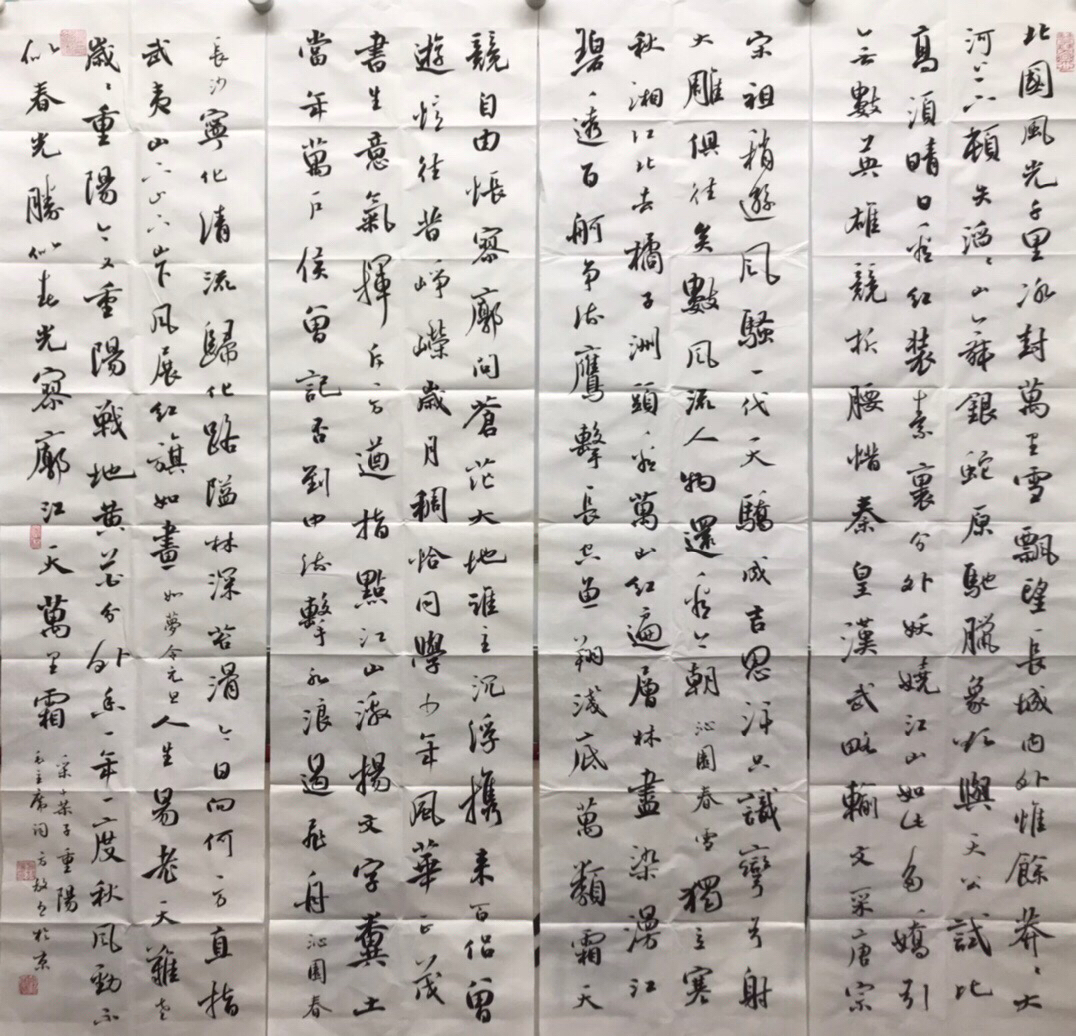 北國風光千里冰封萬里雪飄望長城內外惟餘莽莽大
河上下頓失滔滔山舞銀蛇原馳臘象欲與天公試比
高須晴日看紅裝素裹分外妖嬈江山如此多嬌引
無數英雄競折腰惜秦皇漢武略輸文采唐宗
宋祖稍遜風騷一代天驕成吉思汗只識彎弓射
大雕俱往矣數風流人物還看今朝 沁園春雪 獨立寒
秋湘江北去橘子洲頭看萬山紅遍層林盡染漫江
碧透百舸爭流鷹擊長空魚翔淺底萬類霜天
競自由悵寥廓問蒼茫大地誰主沉浮攜來百侶曾
遊憶往昔崢嶸歲月稠恰同學少年風華正茂
書生意氣揮斥方遒指點江山激揚文字糞土
當年萬戶侯曾記否到中流擊水浪遏飛舟 沁園春
長沙 寧化清流歸化路隘林深苔滑今日向何方直指
武夷山下山下風展紅旗如畫 如夢令元旦 人生易老天難老
歲歲重陽今又重陽戰地黃花分外香一年一度秋風勁不
似春光勝似春光寥廓江天萬里霜
采桑子重陽
毛主席詞 方放書於京